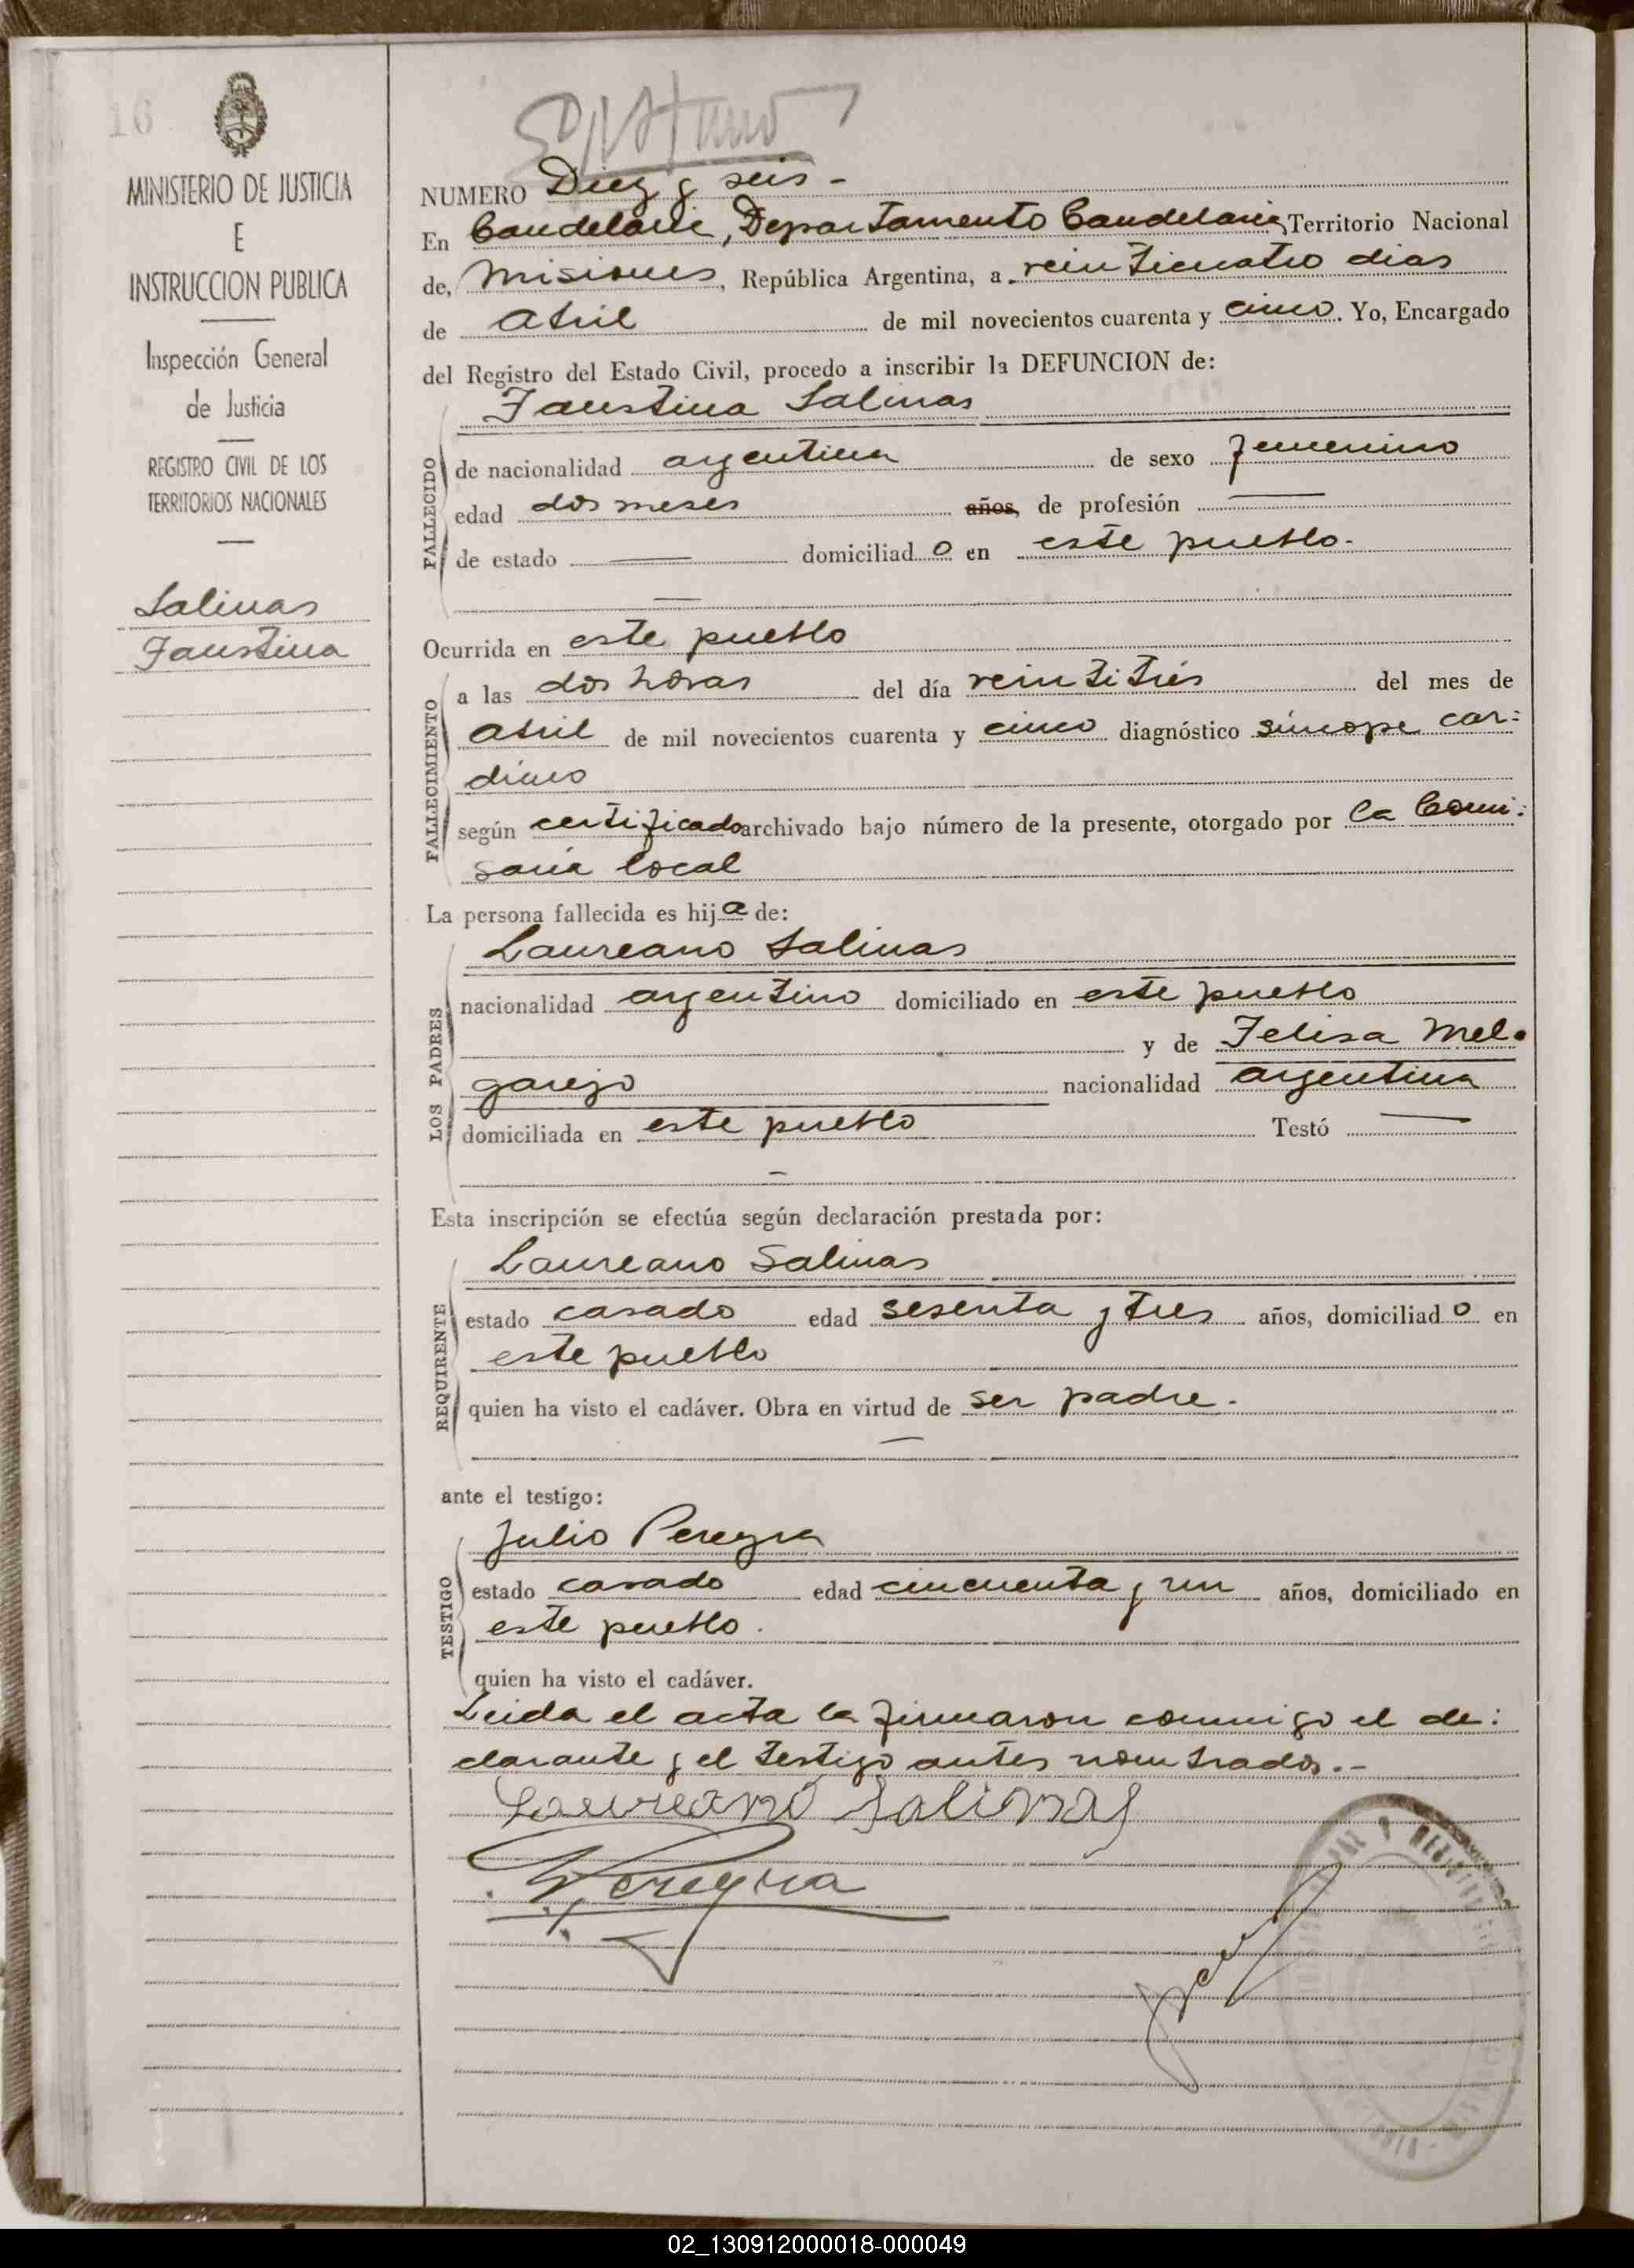 16
MINISTERIO DE JUSTICIA
E
INSTRUCCION PUBLICA
Inspección General
de Justicia
REGISTRO CIVIL DE LOS
TERRITORIOS NACIONALES
Salinas
Faustina
NUMERO Diez y seis -
En Candelaria, Departamento Candelaria, Territorio Nacional
de, Misiones, República Argentina, a veinticuatro dias
de Abril de mil novecientos cuarenta y cinco. Yo, Encargado
del Registro del Estado Civil, procedo a inscribir la DEFUNCION de:
Faustina Salinas
FALLECIDO
de nacionalidad argentina de sexo femenino
edad dos meses años, de profesión —
de estado — domiciliado en este pueblo.-
Ocurrida en este pueblo
FALLECIMIENTO
a las dos horas del día veintitrés del mes de
Abril de mil novecientos cuarenta y cinco diagnóstico síncope car=
díaco
según certificado archivado bajo número de la presente, otorgado por la Comi=
saría local
La persona fallecida es hija de:
LOS PADRES
Laureano Salinas
nacionalidad argentino domiciliado en este pueblo
y de Felisa Mel=
garejo nacionalidad argentina
domiciliada en este pueblo Testó —
Esta inscripción se efectúa según declaración prestada por:
REQUIRENTE
Laureano Salinas
estado casado edad sesenta y tres años, domiciliado en
este pueblo
quien ha visto el cadáver. Obra en virtud de ser padre.
ante el testigo:
TESTIGO
Julio Pereyra
estado casado edad cincuenta y un años, domiciliado en
este pueblo.
quien ha visto el cadáver.
Leida el acta la firmaron conmigo el de=
clarante y el testigo antes nombrados.-
Laureano Salinas
Pereyra
02_130912000018-000049